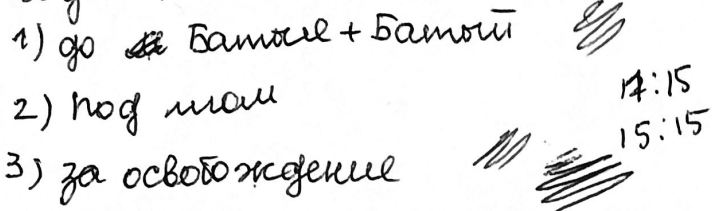 1) до Батые + Батый
2) под игом
3) за освобождение
17:15
15:15